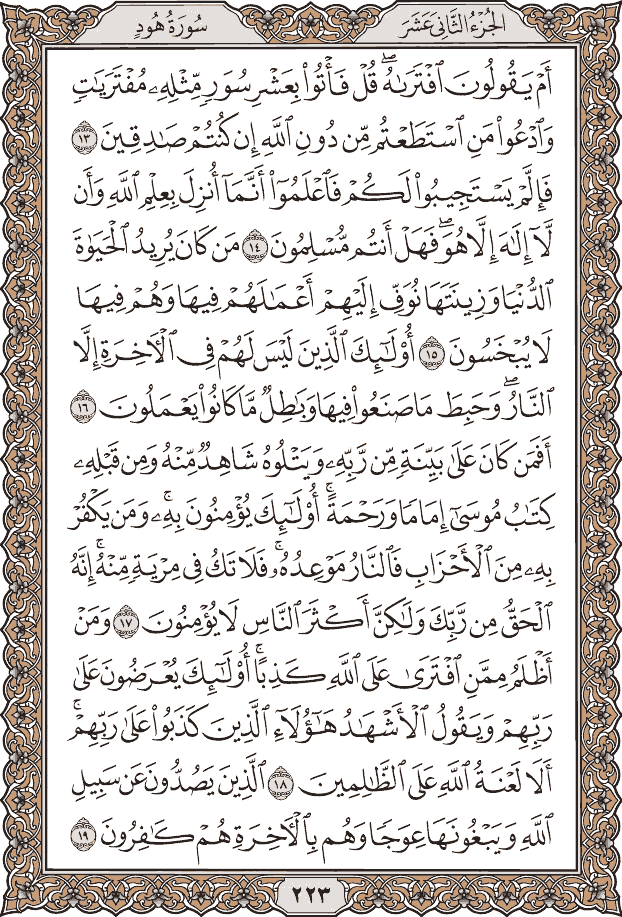 الجُزْءُ الثَّانِي عَشَرَ
سُورَةُ هُودٍ
أَمۡ يَقُولُونَ ٱفۡتَرَىٰهُۖ قُلۡ فَأۡتُواْ بِعَشۡرِ سُوَرٖ مِّثۡلِهِۦ مُفۡتَرَيَٰتٖ
وَٱدۡعُواْ مَنِ ٱسۡتَطَعۡتُم مِّن دُونِ ٱللَّهِ إِن كُنتُمۡ صَٰدِقِينَ ١٣
فَإِلَّمۡ يَسۡتَجِيبُواْ لَكُمۡ فَٱعۡلَمُوٓاْ أَنَّمَآ أُنزِلَ بِعِلۡمِ ٱللَّهِ وَأَن
لَّآ إِلَٰهَ إِلَّا هُوَۖ فَهَلۡ أَنتُم مُّسۡلِمُونَ ١٤ مَن كَانَ يُرِيدُ ٱلۡحَيَوٰةَ
ٱلدُّنۡيَا وَزِينَتَهَا نُوَفِّ إِلَيۡهِمۡ أَعۡمَٰلَهُمۡ فِيهَا وَهُمۡ فِيهَا
لَا يُبۡخَسُونَ ١٥ أُوْلَٰٓئِكَ ٱلَّذِينَ لَيۡسَ لَهُمۡ فِي ٱلۡأٓخِرَةِ إِلَّا
ٱلنَّارُۖ وَحَبِطَ مَا صَنَعُواْ فِيهَا وَبَٰطِلٞ مَّا كَانُواْ يَعۡمَلُونَ ١٦
أَفَمَن كَانَ عَلَىٰ بَيِّنَةٖ مِّن رَّبِّهِۦ وَيَتۡلُوهُ شَاهِدٞ مِّنۡهُ وَمِن قَبۡلِهِۦ
كِتَٰبُ مُوسَىٰٓ إِمَامٗا وَرَحۡمَةًۚ أُوْلَٰٓئِكَ يُؤۡمِنُونَ بِهِۦۚ وَمَن يَكۡفُرۡ
بِهِۦ مِنَ ٱلۡأَحۡزَابِ فَٱلنَّارُ مَوۡعِدُهُۥۚ فَلَا تَكُ فِي مِرۡيَةٖ مِّنۡهُۚ إِنَّهُ
ٱلۡحَقُّ مِن رَّبِّكَ وَلَٰكِنَّ أَكۡثَرَ ٱلنَّاسِ لَا يُؤۡمِنُونَ ١٧ وَمَنۡ
أَظۡلَمُ مِمَّنِ ٱفۡتَرَىٰ عَلَى ٱللَّهِ كَذِبًاۚ أُوْلَٰٓئِكَ يُعۡرَضُونَ عَلَىٰ
رَبِّهِمۡ وَيَقُولُ ٱلۡأَشۡهَٰدُ هَٰٓؤُلَآءِ ٱلَّذِينَ كَذَبُواْ عَلَىٰ رَبِّهِمۡۚ
أَلَا لَعۡنَةُ ٱللَّهِ عَلَى ٱلظَّٰلِمِينَ ١٨ ٱلَّذِينَ يَصُدُّونَ عَن سَبِيلِ
ٱللَّهِ وَيَبۡغُونَهَا عِوَجٗا وَهُم بِٱلۡأٓخِرَةِ هُمۡ كَٰفِرُونَ ١٩
٢٢٣